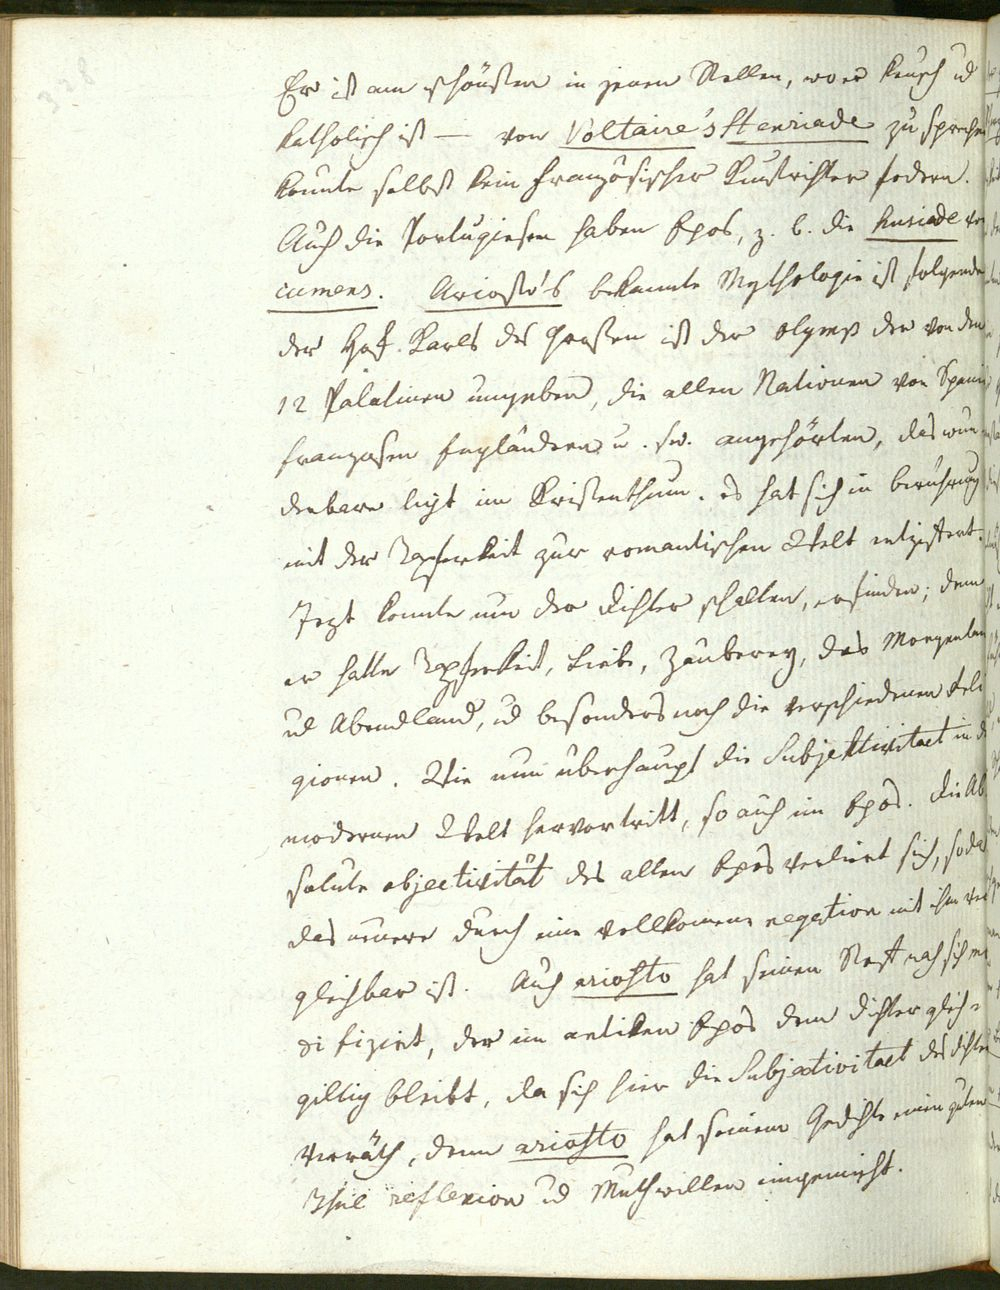 328
Er ist am schönsten in jenen Stellen, wo er keusch ud
katholisch ist — von Voltaire's Henriade zu sprechen
konnte selbst kein französischer Kunstrichter fodern.
Auch die Portugiesen haben Epos, z. b. die Lusiade von
camens. Ariosto's bekannte Mythologie ist folgende
der Hof Karls des Großen ist der olymp der von den
12 Palatinen umgeben, die allen Nationen von Spanie
franzosen Engländern u. sw. angehörten, das wun
derbare ligt im Kristenthum. es hat sich in berührung
mit der Tapferkeit zur romantischen Welt
Jezt konnte nun der Dichter schalten, erfinden; denn
er hatte Tapferkeit, Liebe, Zauberey, das Morgenlan
ud Abendland, ud besonders noch die verschiedenen Reli
gionen. Wie nun überhaupt die Subjektivitaet in d
modernen Welt hervortritt, so auch im Epos. die Ab
solute objectivität des alten Epos verliert sich, soda
das neuere durch eine vollkomene negation mit ihm ver
gleichbar ist. Auch ariosto hat seinen Stoff nach sich mo
difizirt, der im antiken Epos dem dichter gleich-
giltig bleibt, da sich hier die Subjectivitaet des dichte
verräth, denn ariosto hat seinem Gedichte einen guten
Theil reflexion ud Muthwillen eingemischt.